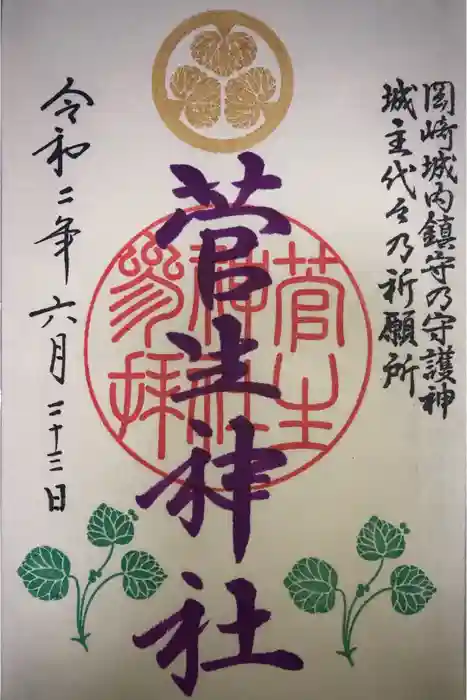 岡崎城内鎮守乃守護神
城主代々乃祈願所
菅生神社
菅生神社参拝
令和二年六月二十三日